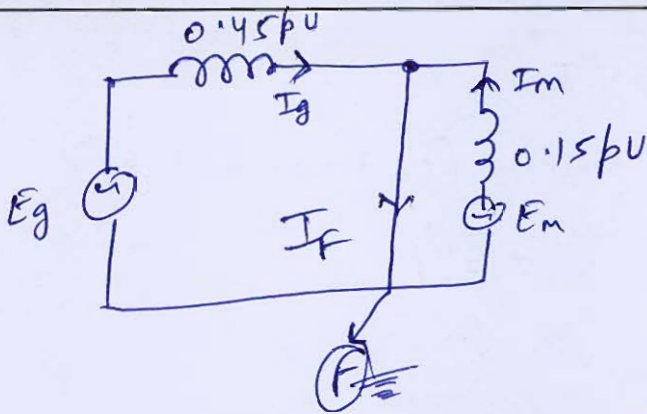 0.45pu
Ig
Im
0.15pu
Eg
IF
Em
F